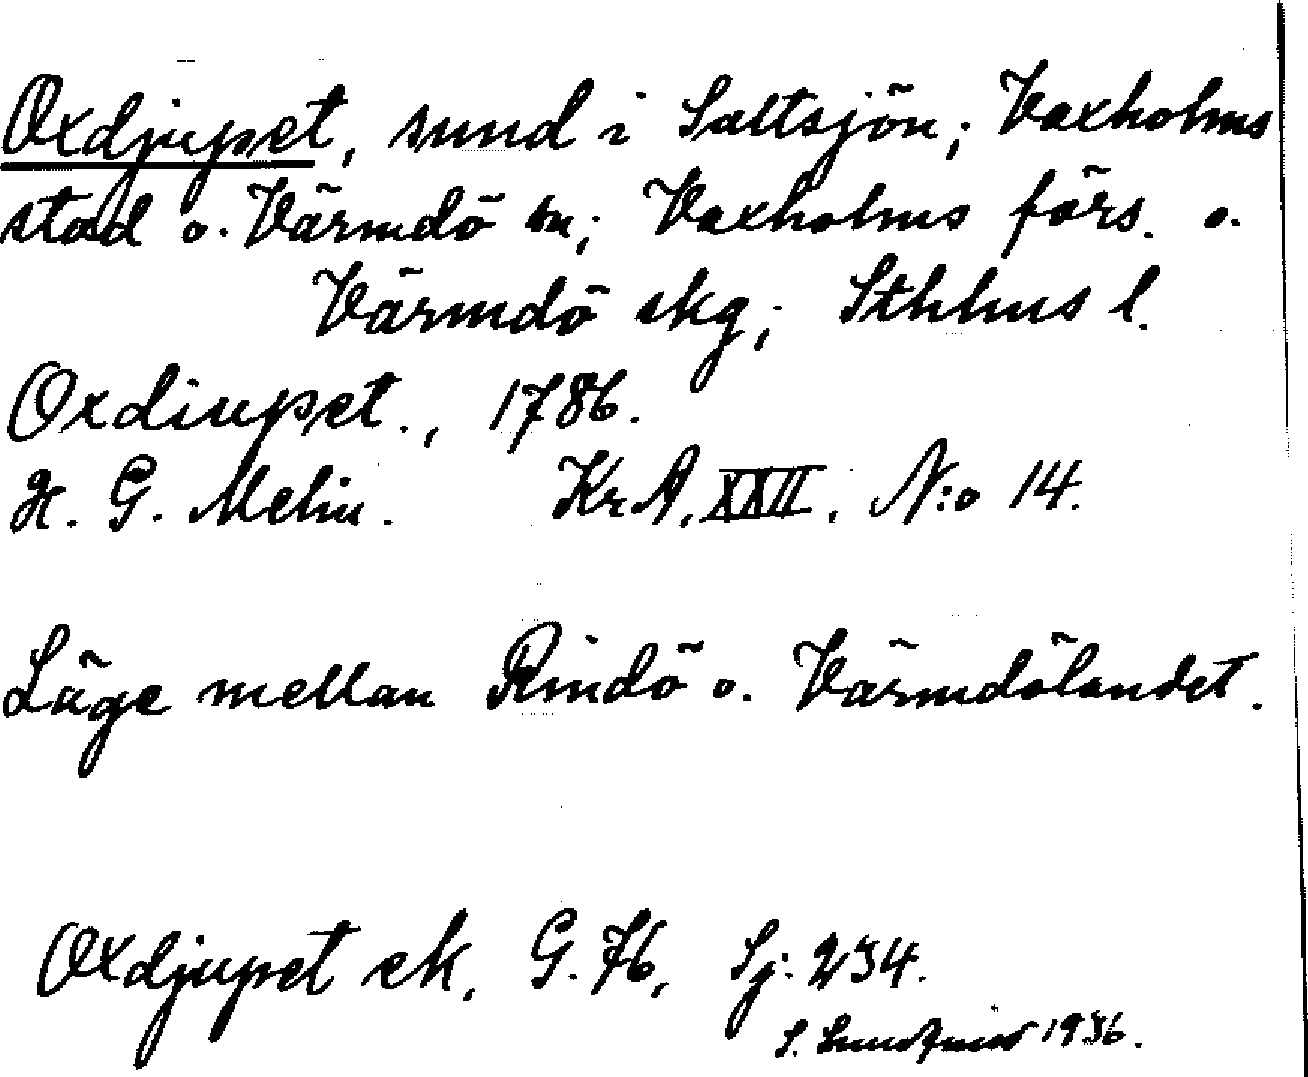 Oxdjupet, sund i Saltsjön; Vaxholms
stad o. Värmdö sn; Vaxholms förs. o.
Värmdö skg; Sthlms l.
Oxdiupet., 1786.
H. G. Melin. KrA, XXII, N:o 14.
Läge mellan Rindö o. Värmdölandet.
Oxdjupet ek, G. 76, Sj: 234.
S. 1936.